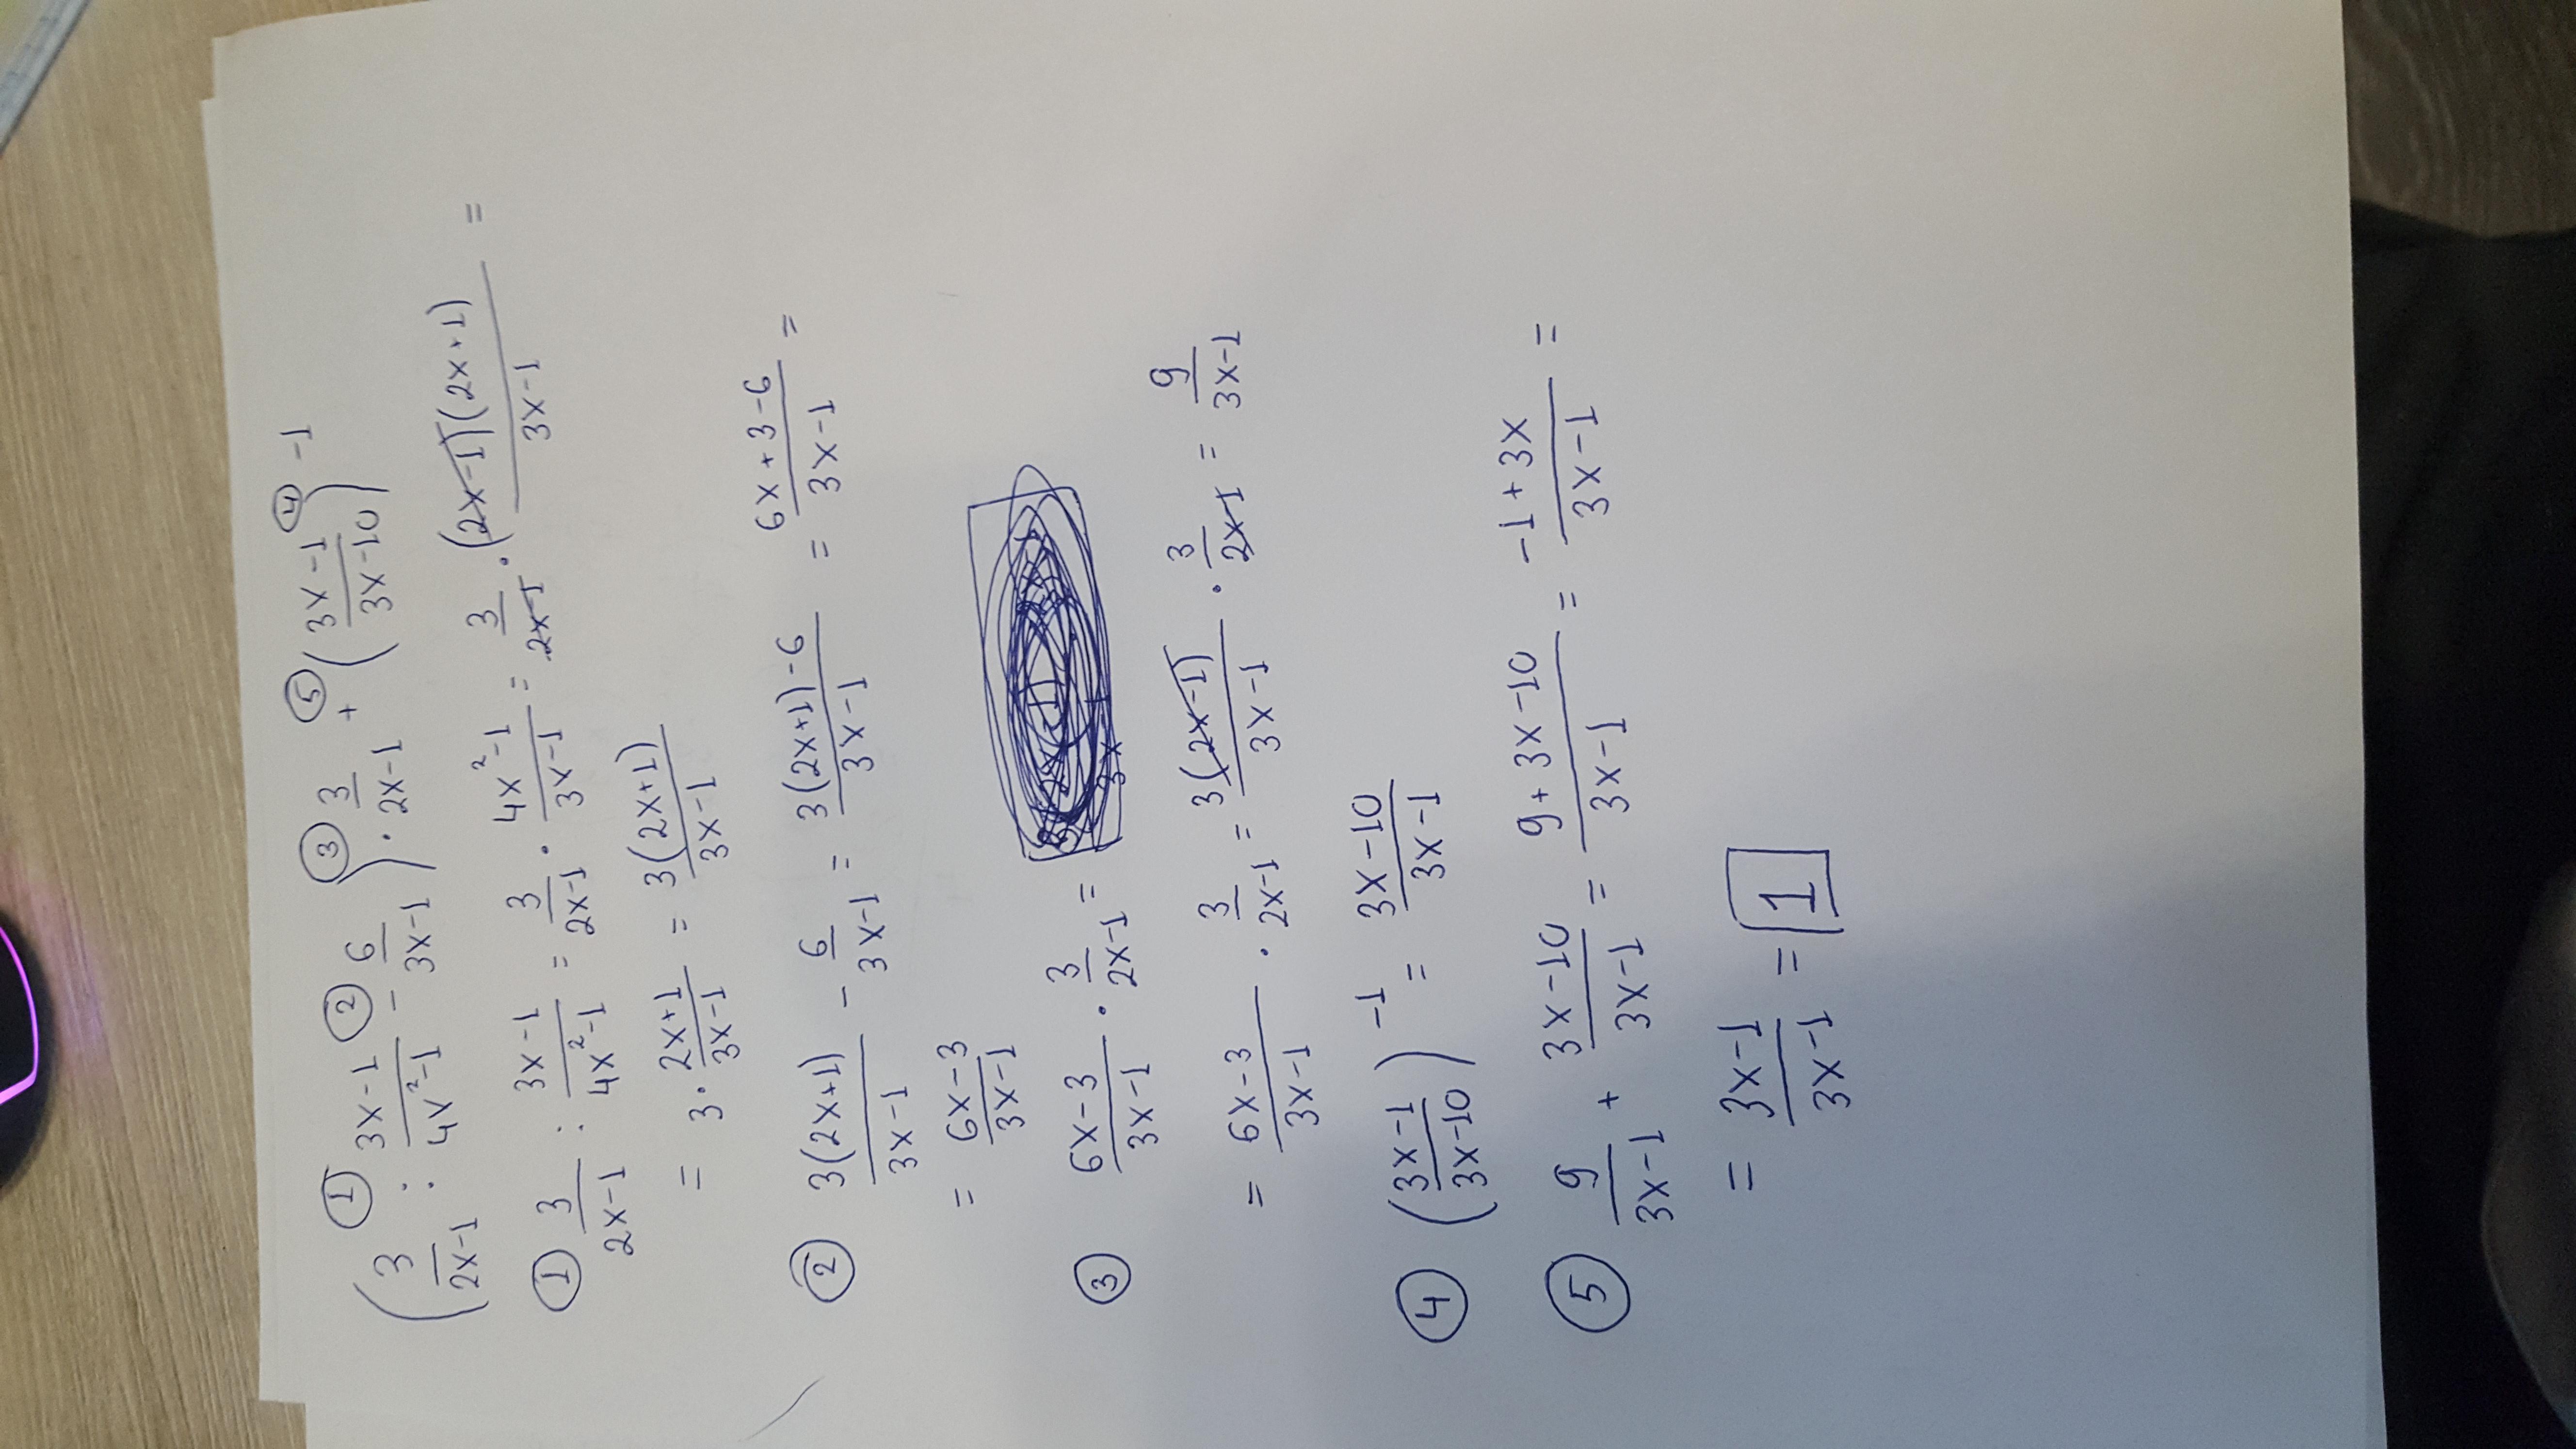 (3/(2x-1) : (3x-1)/(4x²-1) - 6/(3x-1)) · 3/(2x-1) + ((3x-1)/(3x-10))^-1 ① ② ③ ⑤ ④
① 3/(2x-1) : (3x-1)/(4x²-1) = 3/(2x-1) · (4x²-1)/(3x-1) = 3/(2x-1) · (2x-1)(2x+1)/(3x-1) =
= 3 · (2x+1)/(3x-1) = 3(2x+1)/(3x-1)
② 3(2x+1)/(3x-1) - 6/(3x-1) = (3(2x+1)-6)/(3x-1) = (6x+3-6)/(3x-1) =
= (6x-3)/(3x-1)
③ (6x-3)/(3x-1) · 3/(2x-1) =
= (6x-3)/(3x-1) · 3/(2x-1) = 3(2x-1)/(3x-1) · 3/(2x-1) = 9/(3x-1)
④ ((3x-1)/(3x-10))^-1 = (3x-10)/(3x-1)
⑤ 9/(3x-1) + (3x-10)/(3x-1) = (9+3x-10)/(3x-1) = (-1+3x)/(3x-1) =
= (3x-1)/(3x-1) = 1